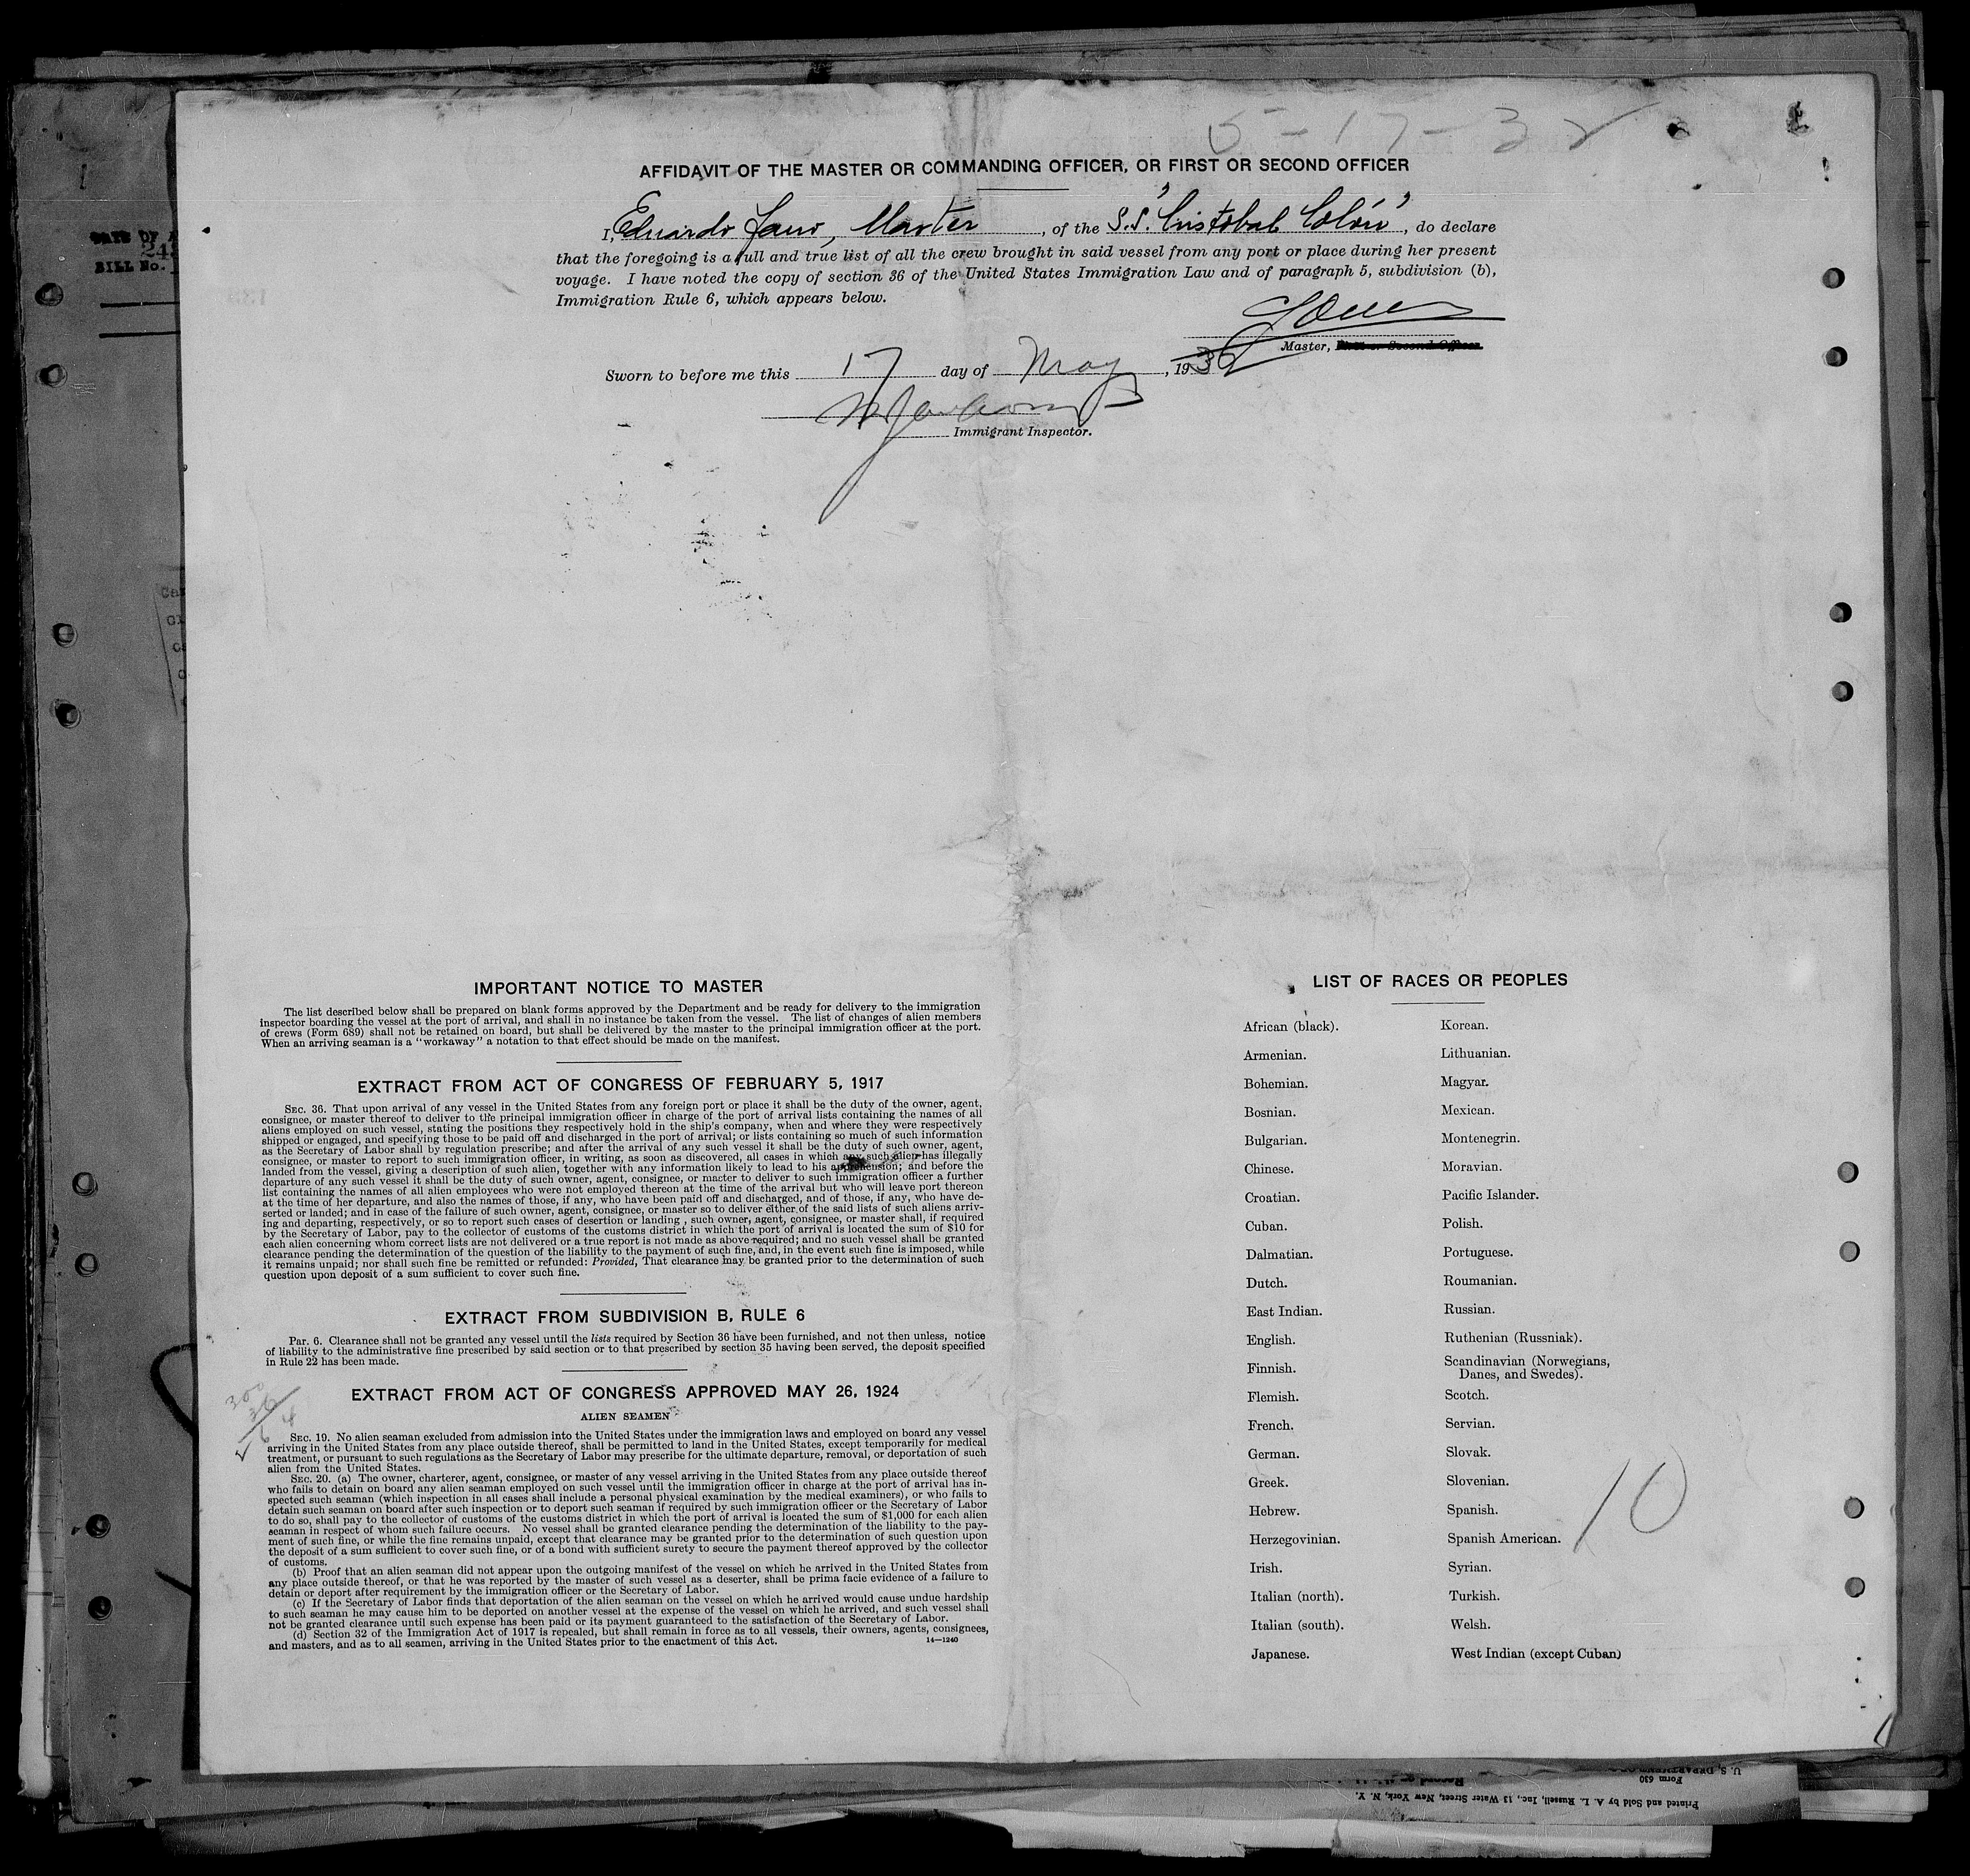 5-17-32
AFFIDAVIT OF THE MASTER OR COMMANDING OFFICER, OR FIRST OR SECOND OFFICER
I, Eduardo Fano, Master, of the S.S. "Cristobal Colón", do declare
that the foregoing is a full and true list of all the crew brought in said vessel from any port or place during her present
voyage. I have noted the copy of section 36 of the United States Immigration Law and of paragraph 5, subdivision (b),
Immigration Rule 6, which appears below.
Master,
Sworn to before me this 17 day of May, 1932
Immigrant Inspector.
IMPORTANT NOTICE TO MASTER
The list described below shall be prepared on blank forms approved by the Department and be ready for delivery to the immigration
inspector boarding the vessel at the port of arrival, and shall in no instance be taken from the vessel. The list of changes of alien members
of crews (Form 689) shall not be retained on board, but shall be delivered by the master to the principal immigration officer at the port.
When an arriving seaman is a "workaway" a notation to that effect should be made on the manifest.
EXTRACT FROM ACT OF CONGRESS OF FEBRUARY 5, 1917
SEC. 36. That upon arrival of any vessel in the United States from any foreign port or place it shall be the duty of the owner, agent,
consignee, or master thereof to deliver to the principal immigration officer in charge of the port of arrival lists containing the names of all
aliens employed on such vessel, stating the positions they respectively hold in the ship's company, when and where they were respectively
shipped or engaged, and specifying those to be paid off and discharged in the port of arrival; or lists containing so much of such information
as the Secretary of Labor shall by regulation prescribe; and after the arrival of any such vessel it shall be the duty of such owner, agent,
consignee, or master to report to such immigration officer, in writing, as soon as discovered, all cases in which any such alien has illegally
landed from the vessel, giving a description of such alien, together with any information likely to lead to his apprehension; and before the
departure of any such vessel it shall be the duty of such owner, agent, consignee, or macter to deliver to such immigration officer a further
list containing the names of all alien employees who were not employed thereon at the time of the arrival but who will leave port thereon
at the time of her departure, and also the names of those, if any, who have been paid off and discharged, and of those, if any, who have de-
serted or landed; and in case of the failure of such owner, agent, consignee, or master so to deliver either of the said lists of such aliens arriv-
ing and departing, respectively, or so to report such cases of desertion or landing, such owner, agent, consignee, or master shall, if required
by the Secretary of Labor, pay to the collector of customs of the customs district in which the port of arrival is located the sum of $10 for
each alien concerning whom correct lists are not delivered or a true report is not made as above required; and no such vessel shall be granted
clearance pending the determination of the question of the liability to the payment of such fine, and, in the event such fine is imposed, while
it remains unpaid; nor shall such fine be remitted or refunded: Provided, That clearance may be granted prior to the determination of such
question upon deposit of a sum sufficient to cover such fine.
EXTRACT FROM SUBDIVISION B, RULE 6
Par. 6. Clearance shall not be granted any vessel until the lists required by Section 36 have been furnished, and not then unless, notice
of liability to the administrative fine prescribed by said section or to that prescribed by section 35 having been served, the deposit specified
in Rule 22 has been made.
EXTRACT FROM ACT OF CONGRESS APPROVED MAY 26, 1924
300
36
6 4
ALIEN SEAMEN
SEC. 19. No alien seaman excluded from admission into the United States under the immigration laws and employed on board any vessel
arriving in the United States from any place outside thereof, shall be permitted to land in the United States, except temporarily for medical
treatment, or pursuant to such regulations as the Secretary of Labor may prescribe for the ultimate departure, removal, or deportation of such
alien from the United States.
SEC. 20. (a) The owner, charterer, agent, consignee, or master of any vessel arriving in the United States from any place outside thereof
who fails to detain on board any alien seaman employed on such vessel until the immigration officer in charge at the port of arrival has in-
spected such seaman (which inspection in all cases shall include a personal physical examination by the medical examiners), or who fails to
detain such seaman on board after such inspection or to deport such seaman if required by such immigration officer or the Secretary of Labor
to do so, shall pay to the collector of customs of the customs district in which the port of arrival is located the sum of $1,000 for each alien
seaman in respect of whom such failure occurs. No vessel shall be granted clearance pending the determination of the liability to the pay-
ment of such fine, or while the fine remains unpaid, except that clearance may be granted prior to the determination of such question upon
the deposit of a sum sufficient to cover such fine, or of a bond with sufficient surety to secure the payment thereof approved by the collector
of customs.
(b) Proof that an alien seaman did not appear upon the outgoing manifest of the vessel on which he arrived in the United States from
any place outside thereof, or that he was reported by the master of such vessel as a deserter, shall be prima facie evidence of a failure to
detain or deport after requirement by the immigration officer or the Secretary of Labor.
(c) If the Secretary of Labor finds that deportation of the alien seaman on the vessel on which he arrived would cause undue hardship
to such seaman he may cause him to be deported on another vessel at the expense of the vessel on which he arrived, and such vessel shall
not be granted clearance until such expense has been paid or its payment guaranteed to the satisfaction of the Secretary of Labor.
(d) Section 32 of the Immigration Act of 1917 is repealed, but shall remain in force as to all vessels, their owners, agents, consignees,
and masters, and as to all seamen, arriving in the United States prior to the enactment of this Act. 14—1240
LIST OF RACES OR PEOPLES
African (black). Korean.
Armenian. Lithuanian.
Bohemian. Magyar.
Bosnian. Mexican.
Bulgarian. Montenegrin.
Chinese. Moravian.
Croatian. Pacific Islander.
Cuban. Polish.
Dalmatian. Portuguese.
Dutch. Roumanian.
East Indian. Russian.
English. Ruthenian (Russniak).
Finnish. Scandinavian (Norwegians,
Danes, and Swedes).
Flemish. Scotch.
French. Servian.
German. Slovak.
Greek. Slovenian.
Hebrew. Spanish.
Herzegovinian. Spanish American.
10
Irish. Syrian.
Italian (north). Turkish.
Italian (south). Welsh.
Japanese. West Indian (except Cuban)
BILL No.
U. S. DEPARTMENT
Form 630
Printed and Sold by A. L. Russell, Inc., 13 Water Street, New York, N. Y.